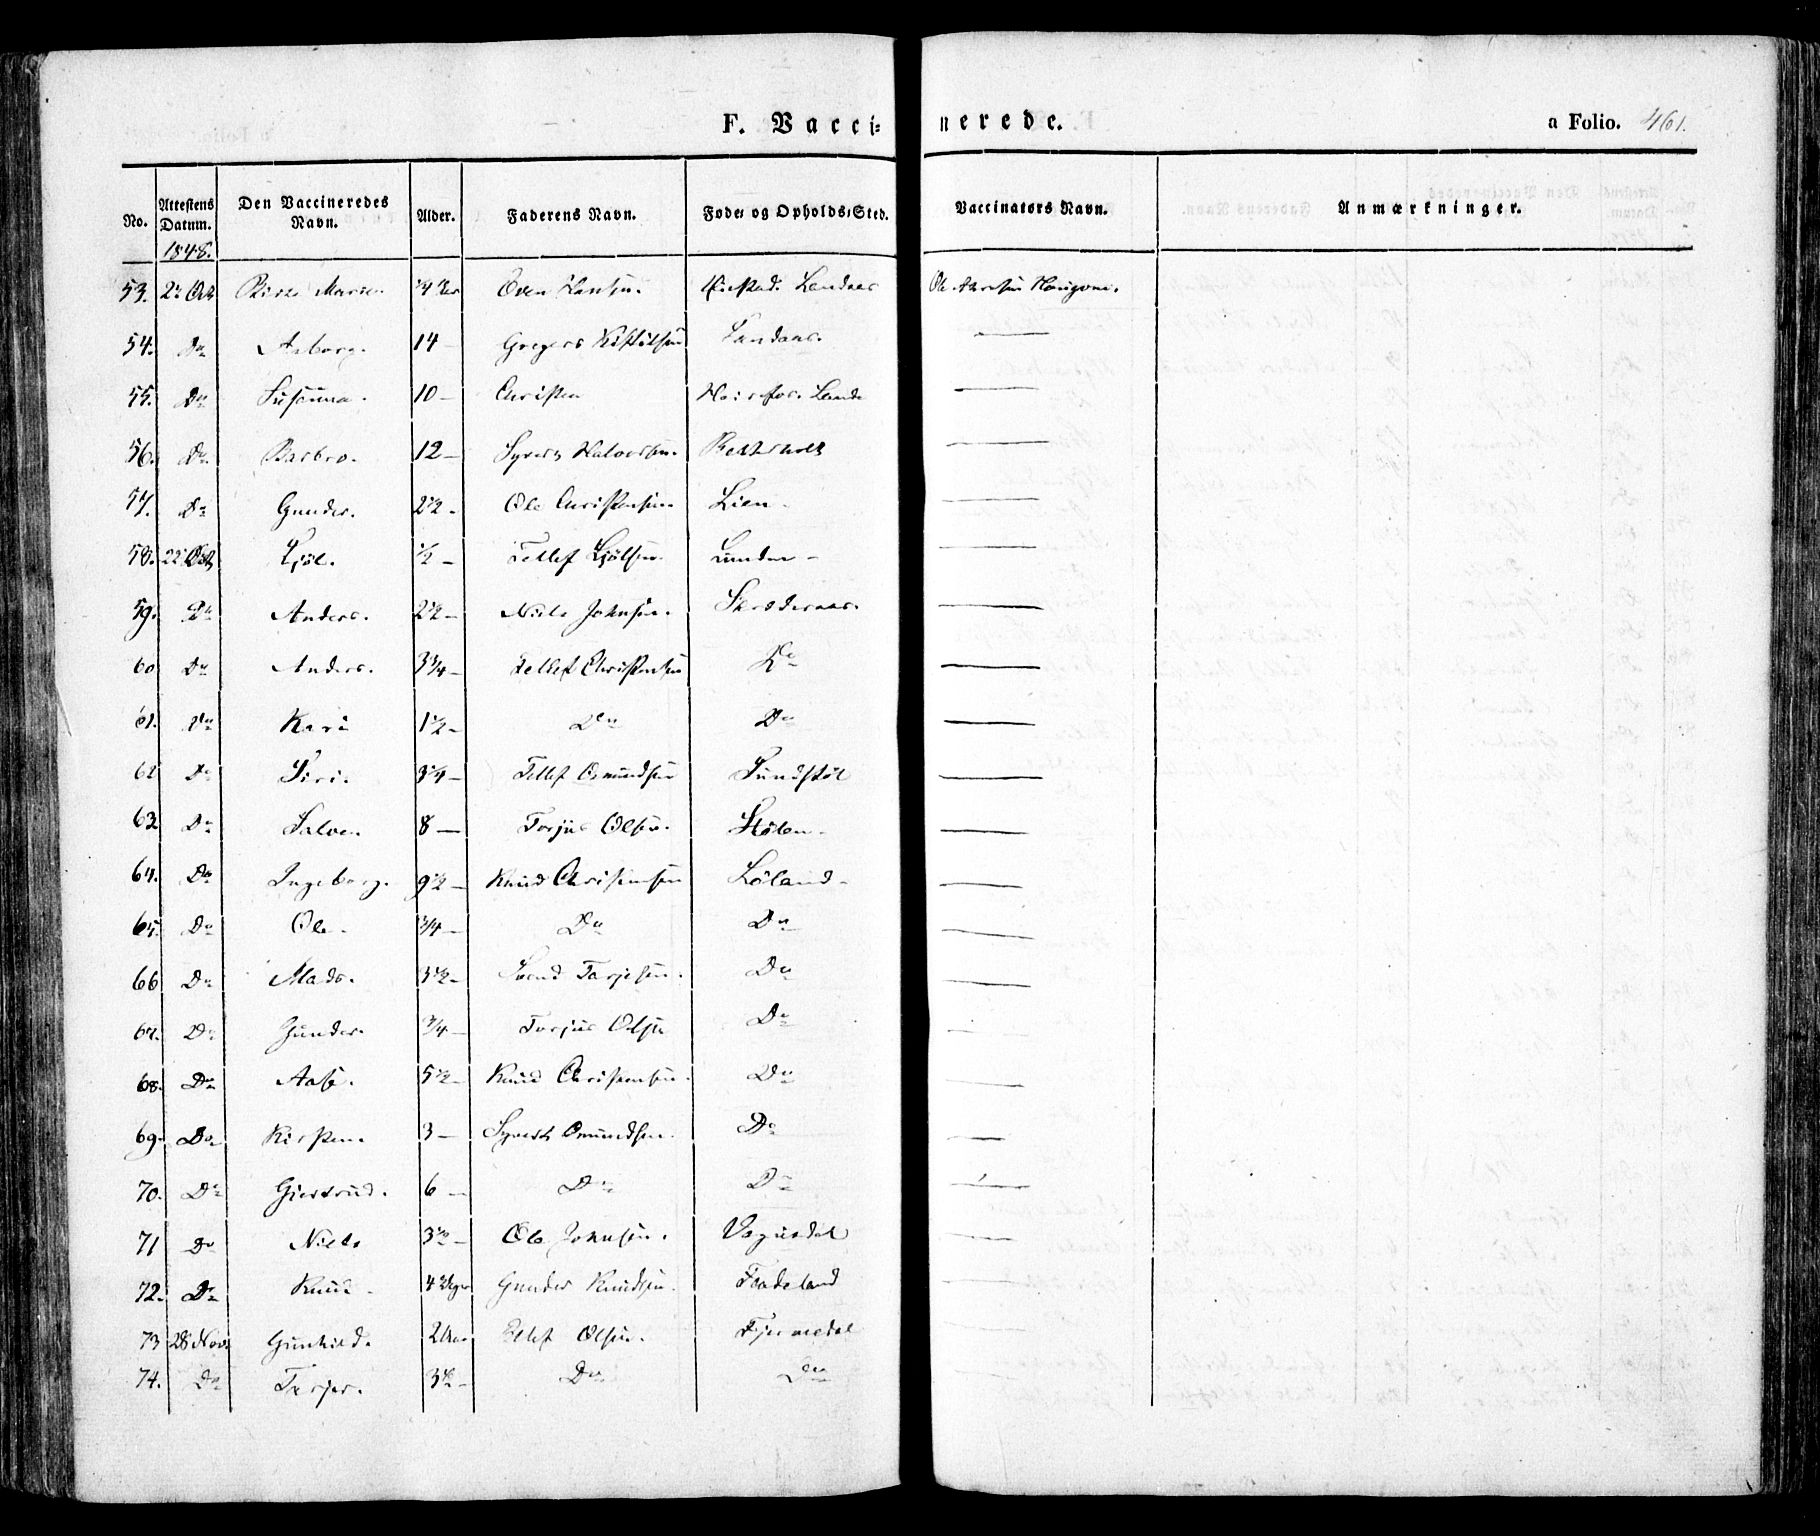 F. Vaccinerede.
a Folio. 461.
No. Attestens Datum. Den Vaccineredes Navn. Alder. Faderens Navn. Føde- og Opholds-Sted. Vaccinators Navn. Anmærkninger.
1848.
53. 2 Oct Marie 3/4 Aar Oven Hansen Landaas Ole
54. Do Aaborg. 14 — Gregers Kistolsen Landaas. —
55. Do Susanna. 10 — Christen —
56. Do Barbro. 12 — Syvert Halvorsen. —
57. Do Gunder. 2 1/2 - Ole Christensen Lien. —
58. 22 Oct Ljøl. 1/2 — Tellef Ljølsen Lunden —
59. Do Anders. 2 1/2 — Niels Johnsen. —
60 Do Anders. 3 3/4 — Tellef Christensen Do —
61. Do Kari 1 1/2 - Do Do —
62 Do Siri. 3 1/4 — Tellef Osmundsen Sundstøl —
63 Do Salve. 8 — Torjus Olsen. Stølen. —
64. Do Ingeborg. 9 1/2 — Knud Christensen Løland. —
65. Do Ole. 3/4 — Do Do —
66 Do Mads. 3 1/2 - Svend Tarjesen. Do —
67. Do Gunder. 3/4 — Torjus Olsen Do —
68. Do Aase. 5 1/2 - Knud Christensen. Do —
69. Do Kirsten. 3 — Syvert Omundsen. Do —
70. Do Giertrud. 6 — Do Do —
71 Do Niels 3 1/2 — Ole Johnsen. Vegusdal —
72. Do Knud 4 Uger Gunder Knudsen. Fladeland —
73 28 Nov. Gunhild. 2 Aar Tellef Olsen. Fjermedal —
74. Do Terjer. 3 1/2 - Do Do —